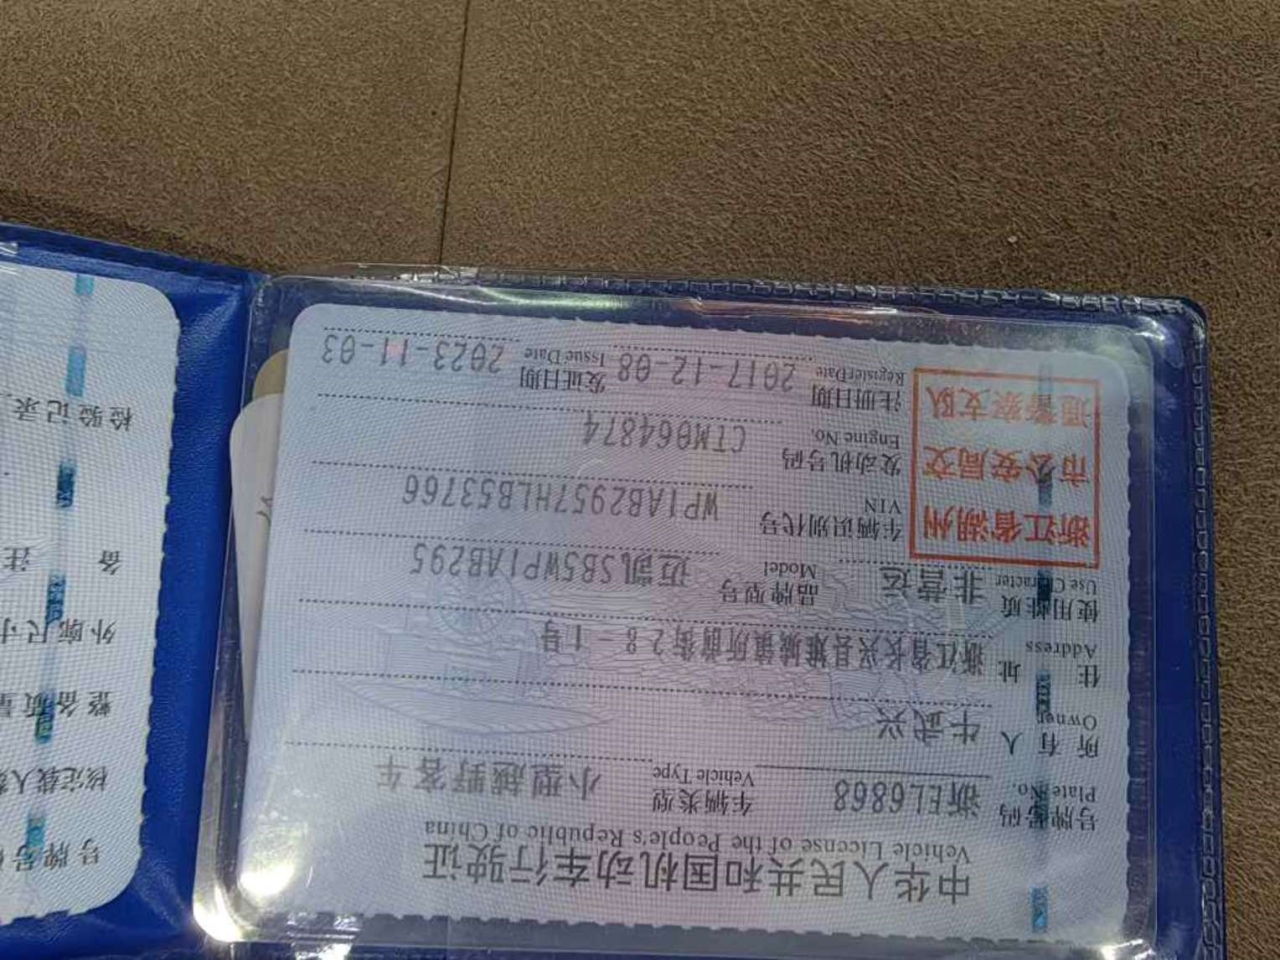 中华人民共和国机动车行驶证
Vehicle License of the People's Republic of China
号牌号码 Plate No. 浙EL6868 车辆类型 Vehicle Type 小型越野客车
所有人 Owner 牛武兴
住址 Address 浙江省长兴县雉城镇所前街28-1号
使用性质 Use Character 非营运 品牌型号 Model 迈凯SB5WP1AB295
浙江省湖州市公安局交通警察支队
车辆识别代号 VIN WP1AB2957HLB53766
发动机号码 Engine No. CTM064874
注册日期 Register Date 2017-12-08 发证日期 Issue Date 2023-11-03
号牌号
核定载人数
整备质量
外廓尺寸
备注
检验记录